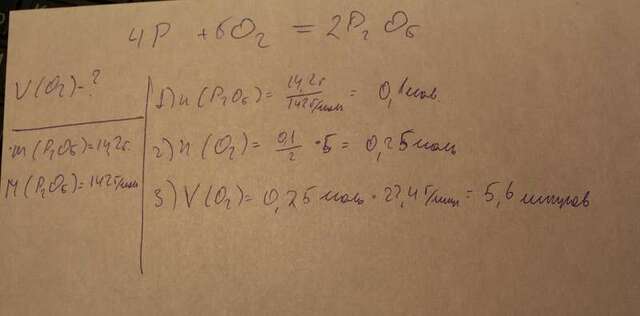 4P + 5O₂ = 2P₂O₅
V(O₂) - ?
m(P₂O₅) = 14,2г.
M(P₂O₅) = 142г/моль
1) n(P₂O₅) = 14,2г / 142г/моль = 0,1 моль.
2) n(O₂) = 0,1 / 2 · 5 = 0,25 моль
3) V(O₂) = 0,25 моль · 22,4 г/моль = 5,6 литров